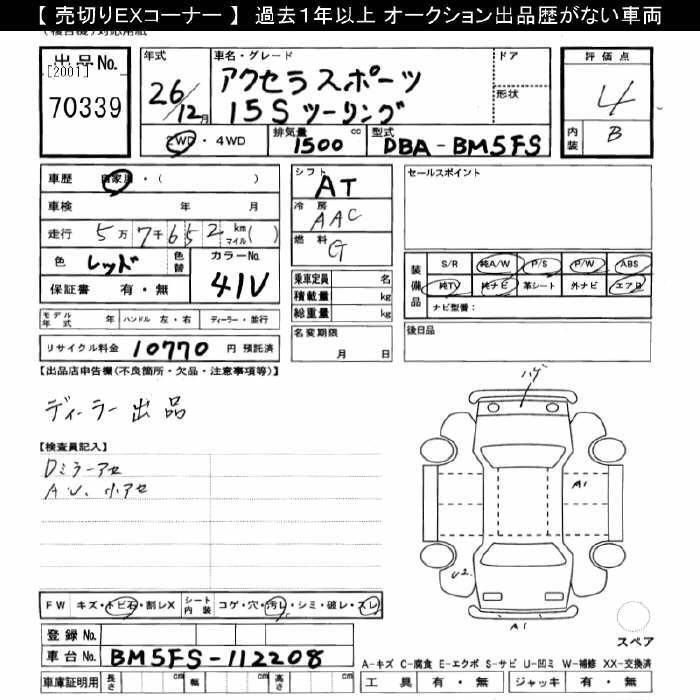 【 売切りEXコーナー 】 過去1年以上 オークション出品歴がない車両
出品No. [2001] 70339
年式 26/12月
車名・グレード アクセラスポーツ 15Sツーリング
ドア
形状
2WD・4WD 排気量 1500 cc 型式 DBA-BM5FS
評価点 4
内装 B
車歴 自家用・( )
車検 年 月
走行 5万7千652 km マイル( )
色 レッド 色替 カラーNo. 41V
保証書 有・無
モデル年式 年 ハンドル 左・右 ディーラー・並行
リサイクル料金 10770 円 預託済
シフト AT
冷房 AAC
燃料 G
乗車定員 名
積載量 kg
総重量 kg
名変期限 月 日
セールスポイント
装備品 S/R 純A/W P/S P/W ABS
純TV 純ナビ 革シート 外ナビ エアB
ナビ型番:
後日品
【出品店申告欄(不良箇所・欠品・注意事項等)】
ディーラー出品
【検査員記入】
Dミラーアセ
AU、小アセ
ハゲ
A1
U2
A1
スペア
FW キズ・トビ石・割レX シート内装 コゲ・穴・汚レ・シミ・破レ・スレ
登録No.
車台No. BM5FS-112208
車庫証明用 長さ cm 幅 cm 高さ cm
A-キズ C-腐食 E-エクボ S-サビ U-凹ミ W-補修 XX-交換済
工具 有・無 ジャッキ 有・無